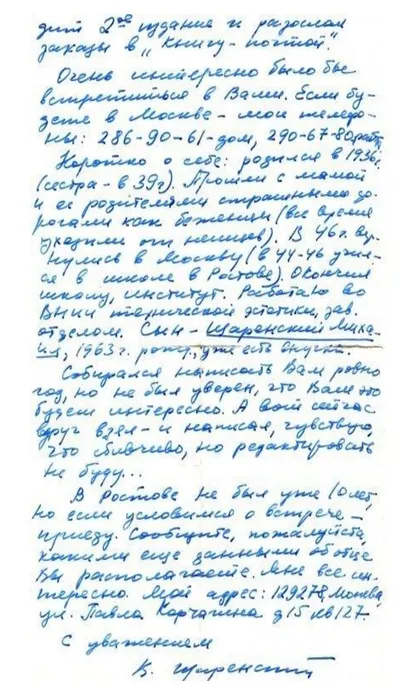 дит 2ое издание и разослал
заказы в „Книгу-почтой."
Очень интересно было бы
встретиться в Вами. Если бу-
дете в Москве - мои телефо-
ны: 286-90-61-дом, 290-67-80 раб.
Коротко о себе: родился в 1936г.
(сестра - в 39г). Прошли с мамой
и ее родителями страшными до-
рогами как беженцы (все время
уходили от немцев). В 46г. вер-
нулись в Москву (в 44-46 учил-
ся в школе в Ростове). Окончил
школу, институт. Работаю во
ВНИИ технической эстетики, зав.
отделом. Сын - Шаренский Миха-
ил, 1963г. рожд., уже есть внучка.
Собирался написать Вам ровно
год, но не был уверен, что Вам это
будет интересно. А вот сейчас
вдруг взял - и написал, чувствую,
что сбивчиво, но редактировать
не буду...
В Ростове не был уже 10 лет,
но если условимся о встрече -
приеду. Сообщите, пожалуйста,
какими еще данными об отце
Вы располагаете. Мне все ин-
тересно. Мой адрес: 129278, Москва,
ул. Павла Корчагина д 15 кв 127.
С уважением
В. Шаренский